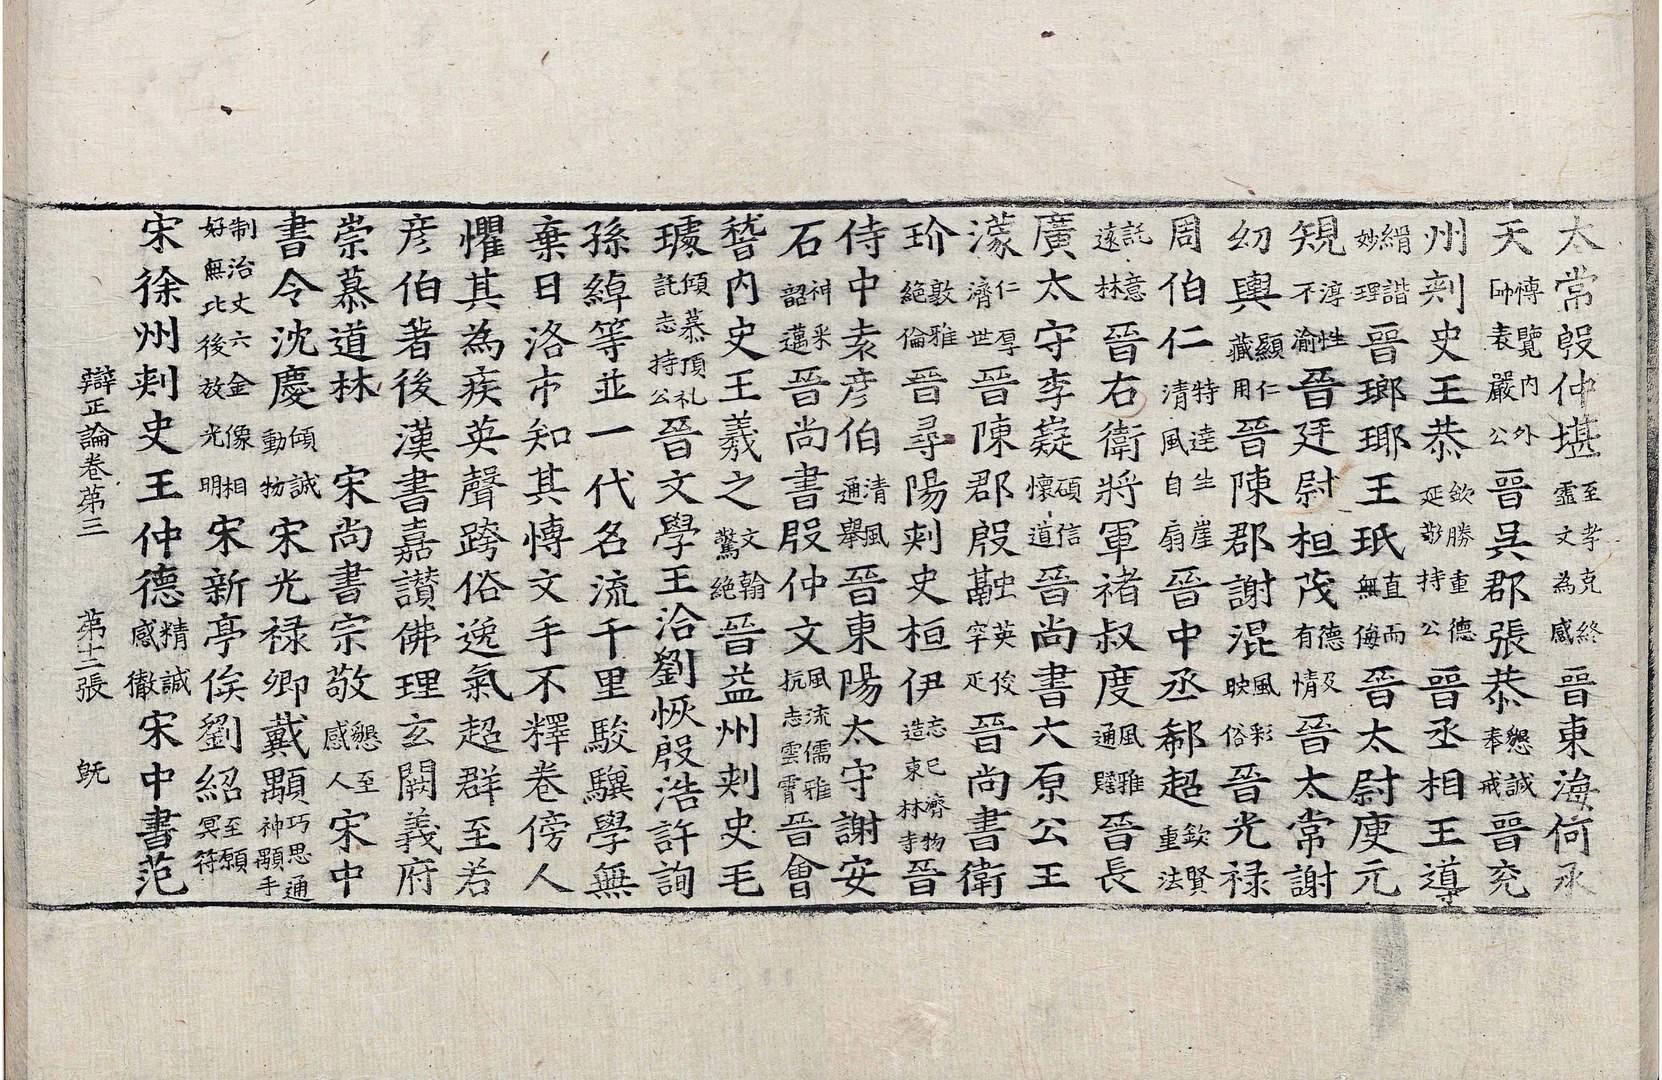 太常殷仲堪至孝克終靈文為感晉東海何承
天博覽內外師表嚴公晉吳郡張恭懇誠奉戒晉兖
州刺史王恭欽勝重德延敬持公晉丞相王導
絹諧妙理晉瑯瑘王珉直而無侮晉太尉庾元
規淳性不渝晉廷尉桓茂德及有情晉太常謝
幼輿顯仁藏用晉陳郡謝混風彩映俗晉光禄
周伯仁特達生崖清風自扇晉中丞郗超欽賢重法
託意遠林晉右衛將軍禇叔度風雅通贍晉長
廣太守李嶷碩信懷道晉尚書大原公王
濛仁厚濟世晉陳郡殷英俊罕疋晉尚書衛
玠敦雅絕倫晉尋陽刺史桓伊忘已濟物造東林寺晉
侍中袁彦伯清風通舉晉東陽太守謝安
石神采韶邁晉尚書殷仲文風流儒雅抗志雲霄晉會
嵇內史王羲之文翰驚絕晉益州刺史毛
璩傾慕頂礼託志持公晉文學王洽劉恢殷浩許詢
孫綽等並一代名流千里駿驥學無
棄日洛市知其愽文手不釋卷傍人
懼其為疾英聲跨俗逸氣超群至若
彦伯著後漢書嘉讃佛理玄闕義府
崇慕道林 宋尚書宗敬懇至感人宋中
書令沈慶傾誠動物宋光禄卿戴顒巧思通神顒手
制治丈六金像相好無比後放光明宋新亭侯劉紹至願冥符
宋徐州刺史王仲德精誠感徹宋中書范
辯正論卷苐三 苐十二張 旣